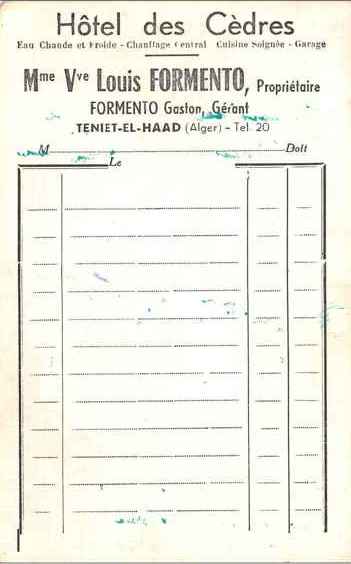 Hôtel des Cèdres
Eau Chaude et Froide - Chauffage Central Cuisine Soignée - Garage
Mme Vve Louis FORMENTO, Propriétaire
FORMENTO Gaston, Gérant
TENIET-EL-HAAD (Alger) - Tel. 20
M Doit
Le